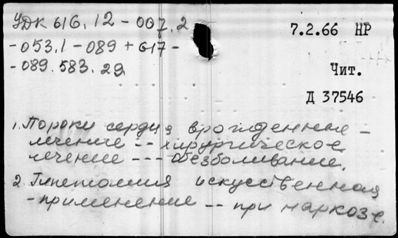 УДК 616.12-007.2
-053.1-089+617-
-089.583.29
7.2.66 НР
Чит.
Д 37546
1. Пороки сердца врожденные -
лечение -- хирургическое
лечение --- обезболивание.
2. Гипотермия искусственная
- применение -- при наркозе.